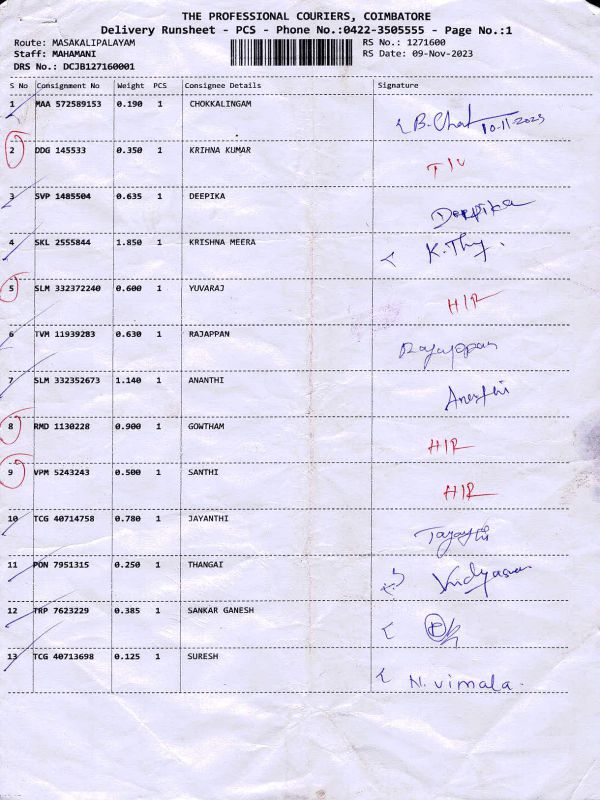 THE PROFESSIONAL COURIERS, COIMBATORE
Delivery Runsheet - PCS - Phone No.:0422-3505555 - Page No.:1
Route: MASAKALIPALAYAM RS No.: 1271600
Staff: MAHAMANI RS Date: 09-Nov-2023
DRS No.: DCJB127160001
S No Consignment No Weight PCS Consignee Details Signature
1 MAA 572589153 0.190 1 CHOKKALINGAM
10-11-2023
2 DDG 145533 0.350 1 KRIHNA KUMAR
3 SVP 1485504 0.635 1 DEEPIKA Deepika
4 SKL 2555844 1.850 1 KRISHNA MEERA
5 SLM 332372240 0.600 1 YUVARAJ H/R
6 TVM 11939283 0.630 1 RAJAPPAN Rajappan
7 SLM 332352673 1.140 1 ANANTHI
8 RMD 1130228 0.900 1 GOWTHAM H/R
9 VPM 5243243 0.500 1 SANTHI H/R
10 TCG 40714758 0.780 1 JAYANTHI
11 PON 7951315 0.250 1 THANGAI
12 TRP 7623229 0.385 1 SANKAR GANESH
13 TCG 40713698 0.125 1 SURESH N. vimala.